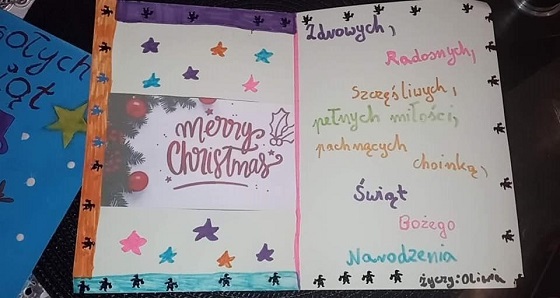 sołych
iąt
merry
Christmas
Zdrowych,
Radosnych,
Szczęśliwych,
pełnych miłości,
pachnących
choinką,
Świąt
Bożego
Narodzenia
życzy: Oliwia